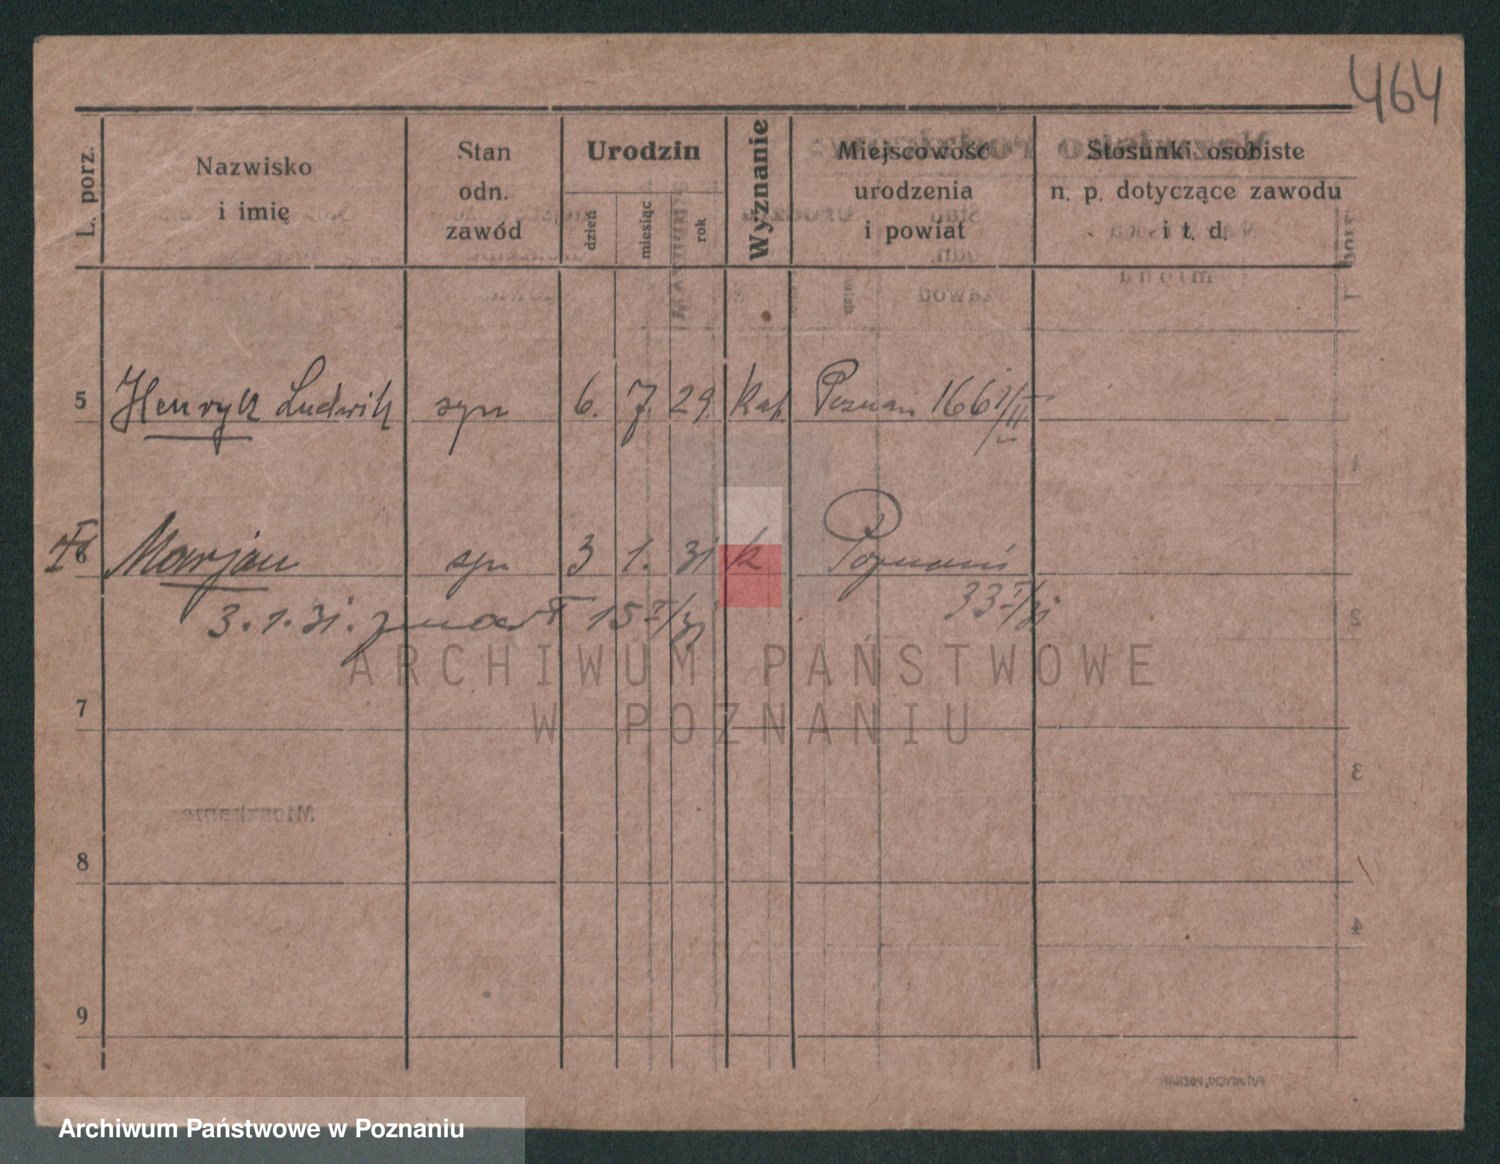 464
L. porz.
Nazwisko
i imię
Stan
odn.
zawód
Urodzin
dzień
miesiąc
rok
Wyznanie
Miejscowość
urodzenia
i powiat
Stosunki osobiste
n. p. dotyczące zawodu
i t. d.
5 Henryk Ludwik syn 6. 7. 29. kat. Poznań 166
6 Marjan syn 3 1. 31 k Poznań
33 I/31
3.1.31. zmarł 15 I/31
ARCHIWUM PAŃSTWOWE
W POZNANIU
7
8
9
Archiwum Państwowe w Poznaniu